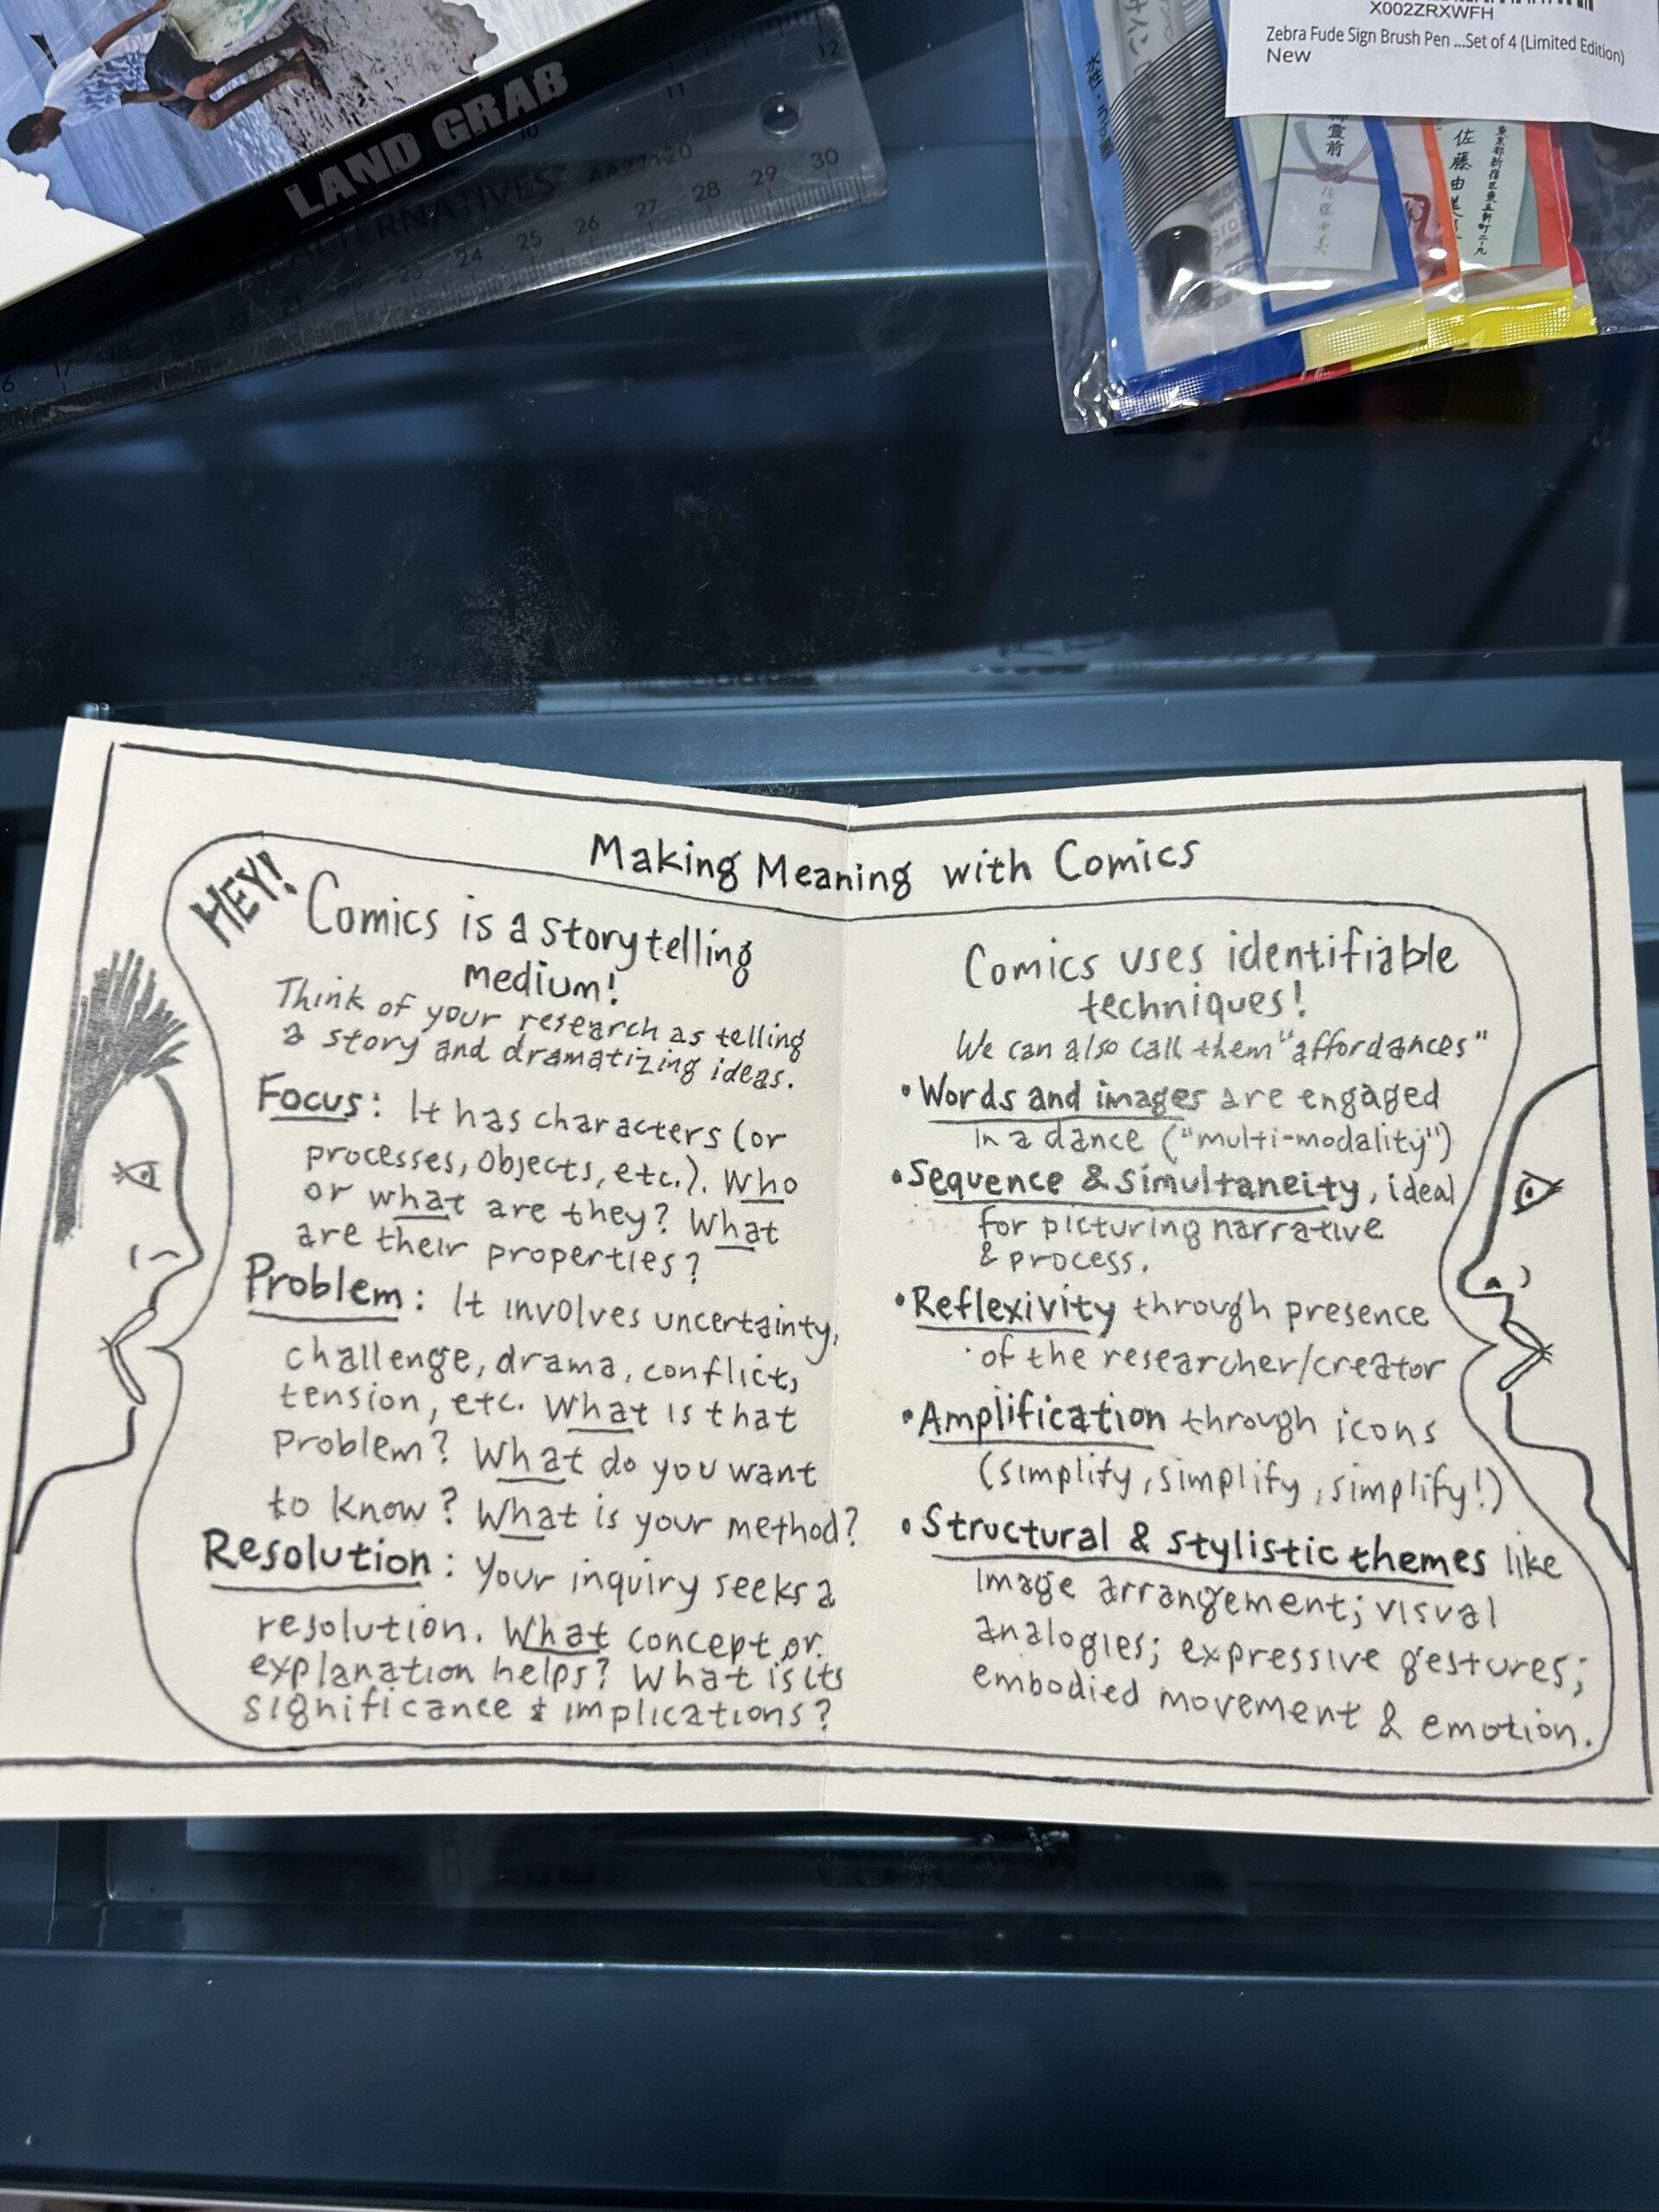 LAND GRAB
12
11
10
ALTERNATIVES AA27120
30
29
28
27
26
25
24
23
17
X002ZRXWFH
Zebra Fude Sign Brush Pen ...Set of 4 (Limited Edition)
New
サイン
御霊前
佐藤由美
東京都新宿区東五軒町二-九
Making Meaning with Comics
HEY! Comics is a storytelling
medium!
Think of your research as telling
a story and dramatizing ideas.
Focus: It has characters (or
processes, objects, etc.). Who
or what are they? What
are their properties?
Problem: It involves uncertainty,
challenge, drama, conflict,
tension, etc. What is that
problem? What do you want
to know? What is your method?
Resolution: Your inquiry seeks a
resolution. What concept or
explanation helps? What is its
significance & implications?
Comics uses identifiable
techniques!
We can also call them "affordances"
• Words and images are engaged
in a dance ("multi-modality")
• Sequence & simultaneity, ideal
for picturing narrative
& process.
• Reflexivity through presence
of the researcher/creator
• Amplification through icons
(simplify, simplify, simplify!)
• Structural & stylistic themes like
image arrangement; visual
analogies; expressive gestures;
embodied movement & emotion.